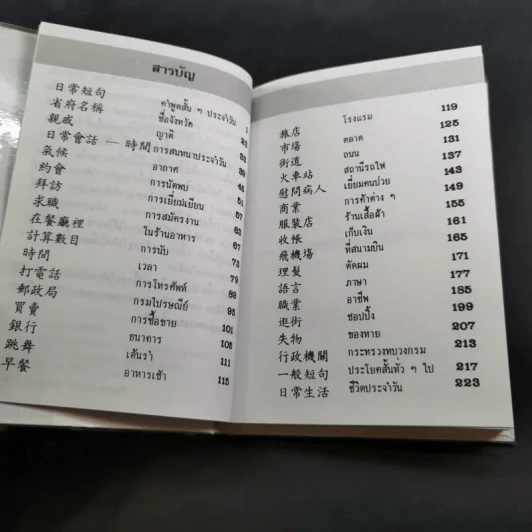 สารบัญ
日常短句 คำพูดสั้น ๆ ประจำวัน 1
省府名稱 ชื่อจังหวัด 23
親戚 ญาติ 35
日常會話 — 時間 การสนทนาประจำวัน 39
氣候 อากาศ 45
約會 การนัดพบ 51
拜訪 การเยี่ยมเยียน 57
求職 การสมัครงาน 63
在餐廳裡 ในร้านอาหาร 67
計算數目 การนับ 73
時間 เวลา 79
打電話 การโทรศัพท์ 89
郵政局 กรมไปรษณีย์ 95
買賣 การซื้อขาย 101
銀行 ธนาคาร 105
跳舞 เต้นรำ 111
早餐 อาหารเช้า 115
旅店 โรงแรม 119
市場 ตลาด 125
街道 ถนน 131
火車站 สถานีรถไฟ 137
慰問病人 เยี่ยมคนป่วย 143
商業 การค้าต่าง ๆ 149
服裝店 ร้านเสื้อผ้า 155
收帳 เก็บเงิน 161
飛機場 ที่สนามบิน 165
理髮 ตัดผม 171
語言 ภาษา 177
職業 อาชีพ 185
逛街 ชอปปิ้ง 199
失物 ของหาย 207
行政機關 กระทรวงทบวงกรม 213
一般短句 ประโยคสั้นทั่ว ๆ ไป 217
日常生活 ชีวิตประจำวัน 223